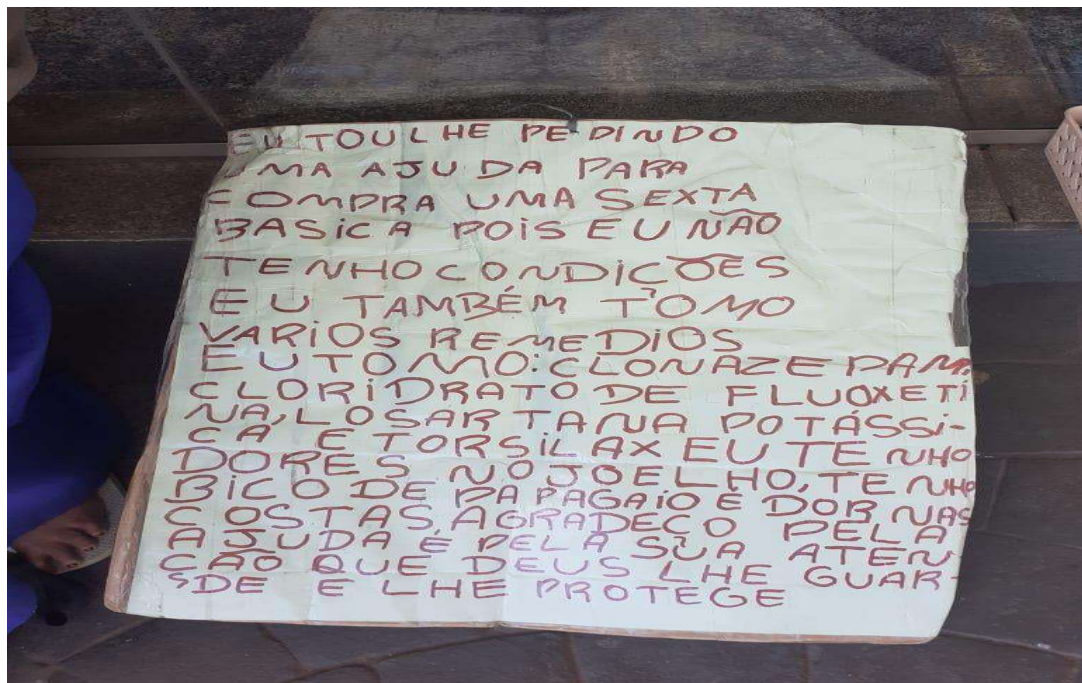 EU TOU LHE PEDINDO
UMA AJUDA PARA
COMPRA UMA SEXTA
BASiCA POiS EU NÃO
TENHO CONDIÇÕES
EU TAMBÉM TOMO
VARIOS REMEDIOS
EU TOMO: CLONAZEPAM
CLORIDRATO DE FLUOXETI
NA, LOSARTANA POTÁSSi-
CA E TORSiLAX EU TENHO
DORES NO JOELHO, TENHO
BiCO DE PAPAGAiO E DOR NAS
COSTAS, AGRADEÇO PELA
AJUDA E PELA SUA ATEN
CÃO QUE DEUS LHE GUAR-
DE E LHE PROTEGE